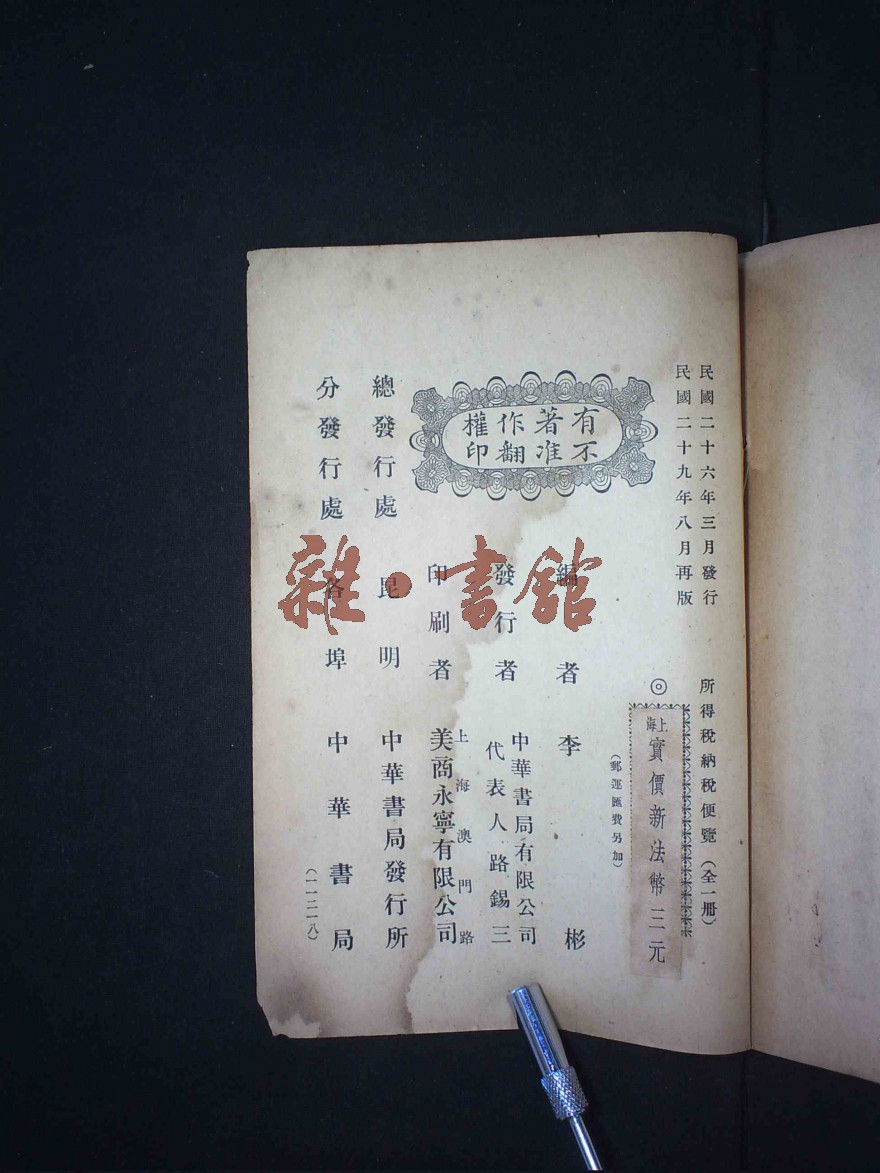 民國二十六年三月發行
民國二十九年八月再版
所得稅納稅便覽(全一册)
◎
上海實價新法幣三元
(郵運匯費另加)
有著作權
不准翻印
編者 李彬
發行者 中華書局有限公司
代表人路錫三
印刷者 上海澳門路
美商永寧有限公司
總發行處 昆明 中華書局發行所
分發行處 各埠 中華書局
(一一二一八)
雜·書館